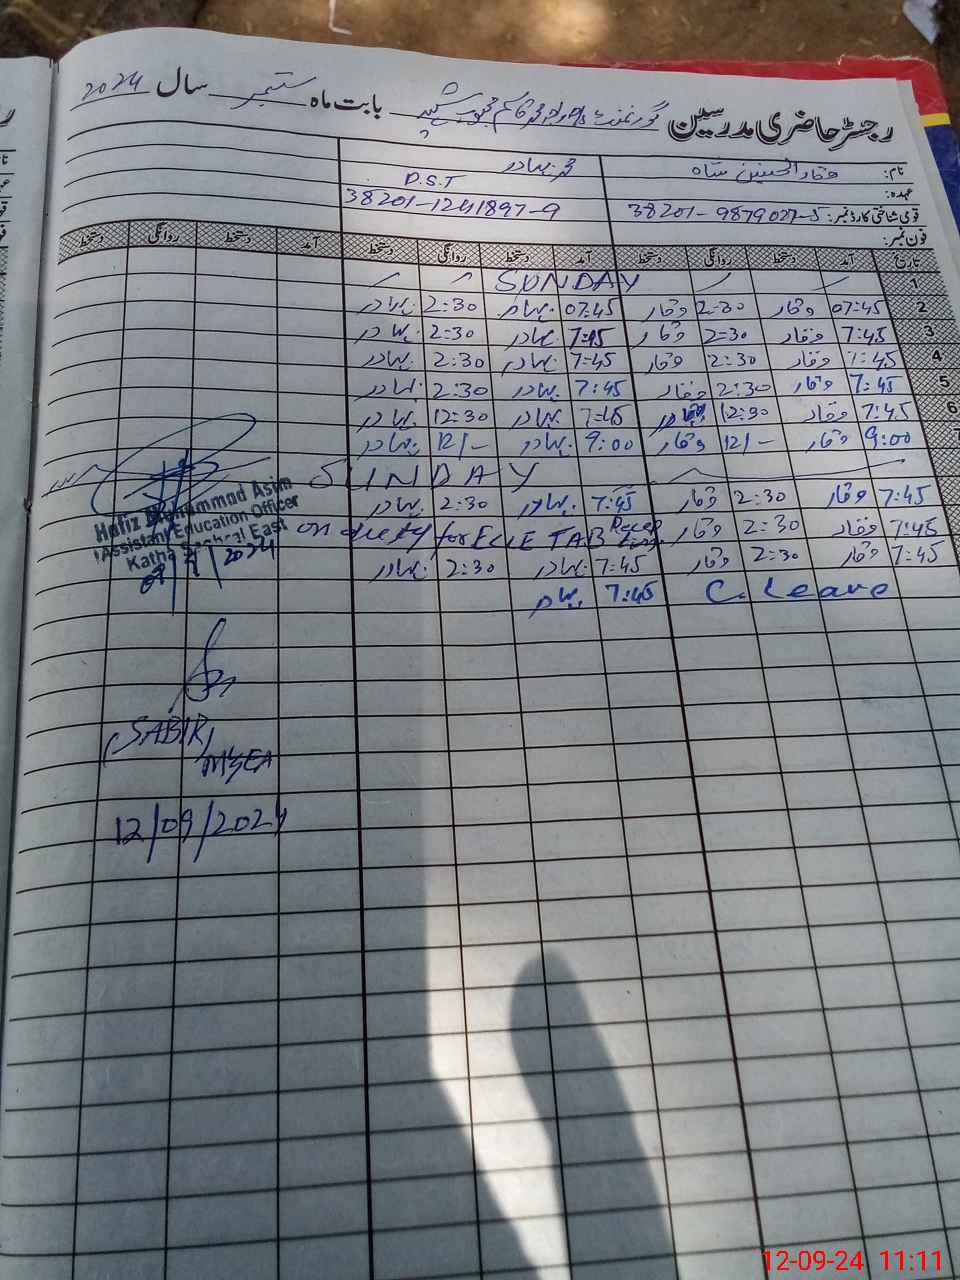 رجسٹر حاضری مدرسین گورنمنٹ بابت ماہ ستمبر سال 2024
نام: وقار الحسنین شاہ محمد بہادر
عہدہ: P.S.T
قومی شناختی کارڈ نمبر: 38201-9879027-5 38201-1241897-9
فون نمبر:
تاریخ آمد دستخط روانگی دستخط آمد دستخط روانگی دستخط آمد دستخط روانگی دستخط
1 SUNDAY
2 07:45 وقار 2:30 وقار 07:45 بہادر 2:30 بہادر
3 7:45 وقار 2:30 وقار 7:45 بہادر 2:30 بہادر
4 7:45 وقار 2:30 وقار 7:45 بہادر 2:30 بہادر
5 7:45 وقار 2:30 وقار 7:45 بہادر 2:30 بہادر
6 7:45 وقار 12:30 7:45 بہادر 12:30 بہادر
7 9:00 وقار 12/- وقار 9:00 بہادر 12/- بہادر
SUNDAY
7:45 وقار 2:30 وقار 7:45 بہادر 2:30 بہادر
7:45 وقار 2:30 وقار on duety for TAB
7:45 وقار 2:30 وقار 7:45 بہادر 2:30 بہادر
C. Leave 7:45 بہادر
Hafiz Muhammad Asim
Assistant Education Officer
Katha East
2024
SABIR
MEA
12/09/2024
12-09-24 11:11